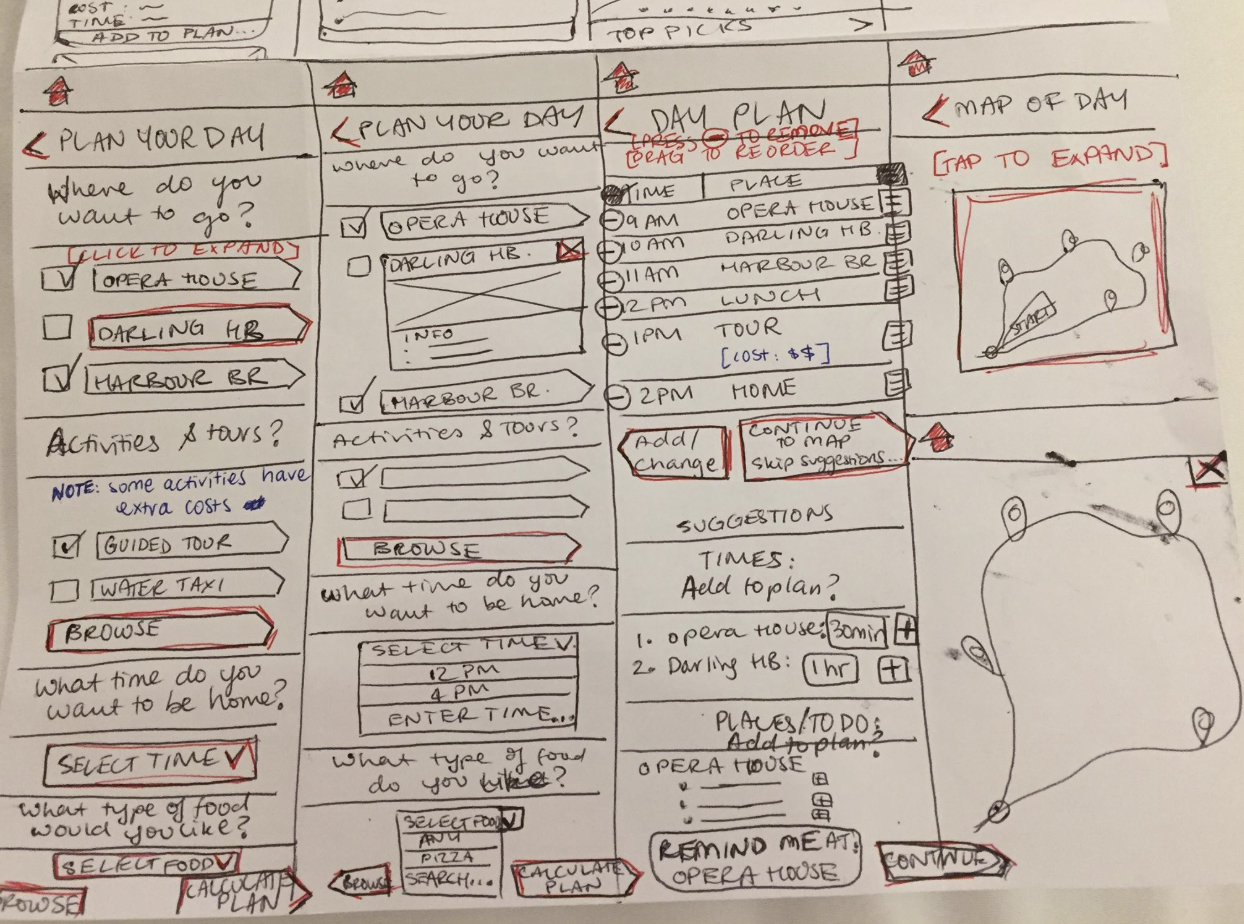 COST: ~
TIME: ~
ADD TO PLAN...
TOP PICKS >
< PLAN YOUR DAY
Where do you
want to go?
[CLICK TO EXPAND]
OPERA HOUSE
DARLING HB
HARBOUR BR
Activities & tours?
NOTE: some activities have
extra costs
GUIDED TOUR
WATER TAXI
BROWSE
What time do you
want to be home?
SELECT TIME
What type of food
would you like?
SELECT FOOD
BROWSE
CALCULATE
PLAN
< PLAN YOUR DAY
Where do you want
to go?
OPERA HOUSE
DARLING HB.
INFO
HARBOUR BR.
Activities & Tours?
BROWSE
What time do you
want to be home?
SELECT TIME
12 PM
4 PM
ENTER TIME...
What type of food
do you like?
SELECT FOOD
ANY
PIZZA
SEARCH...
BROWSE
CALCULATE
PLAN
< DAY PLAN
[PRESS - TO REMOVE]
[DRAG TO REORDER]
TIME PLACE
9 AM OPERA HOUSE
10 AM DARLING HB.
11 AM HARBOUR BR
12 PM LUNCH
1 PM TOUR
[COST: $$]
2 PM HOME
Add/
change
CONTINUE
TO MAP
Skip suggestions...
SUGGESTIONS
TIMES:
Add to plan?
1. Opera House: 30min +
2. Darling HB: 1 hr +
PLACES/TO DO:
Add to plan?
OPERA HOUSE
REMIND ME AT:
OPERA HOUSE
< MAP OF DAY
[TAP TO EXPAND]
START
CONTINUE